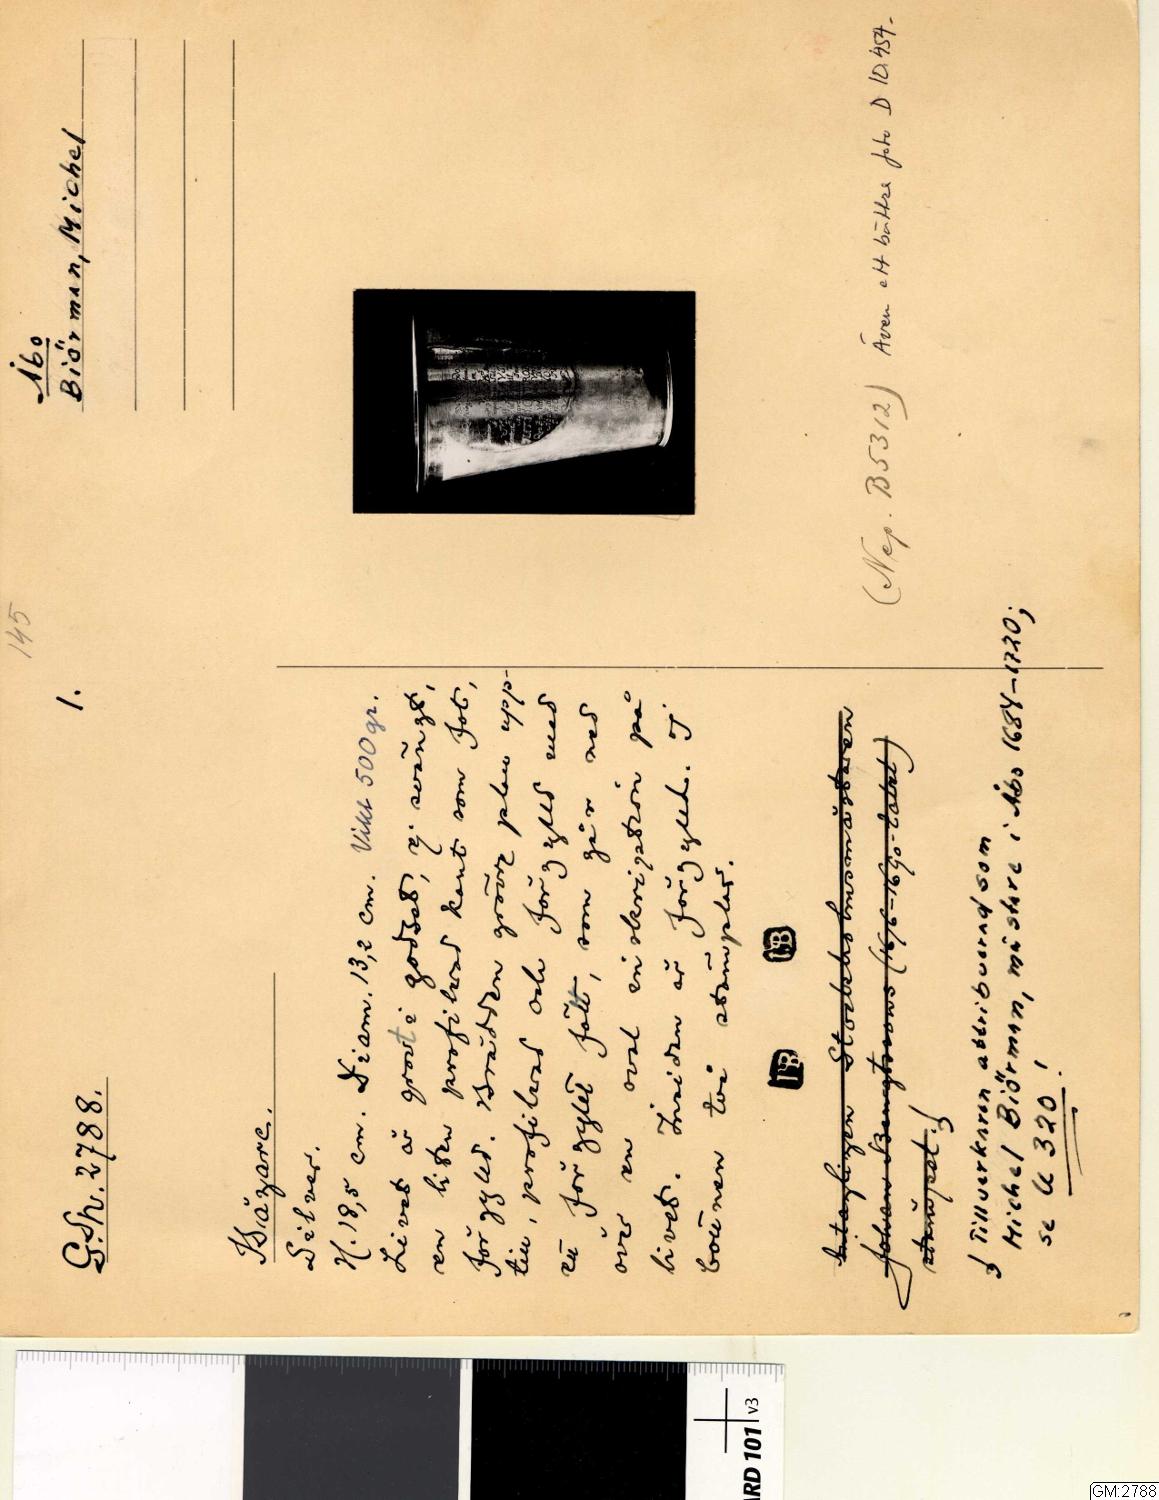 G.M. 2788.
1.
145
Åbo
Biörman, Michel
Bägare.
Silver.
H. 18,5 cm. Diam. 13,2 cm. Vikt 500 gr.
Livet är grovt i godset, ej svängt,
en liten profilerad kant som fot,
förgylld. Brädden grövre plan upp-
till, profilerad och förgylld med
en förgyllt fält, som går ned
över en oval inskription på
livet. Insidan är förgylld. I
bottnen två stämplar.
Antagligen Stockholmsmästaren
Johan Bengtsons (1676-1690-talet)
stämpel.
Tillverkaren attribuerad som
Michel Biörman, mästare i Åbo 1684-1720;
se U 320!
(Neg. B5312) Även ett bättre foto D 10.454.
ARD 101 v3
GM:2788